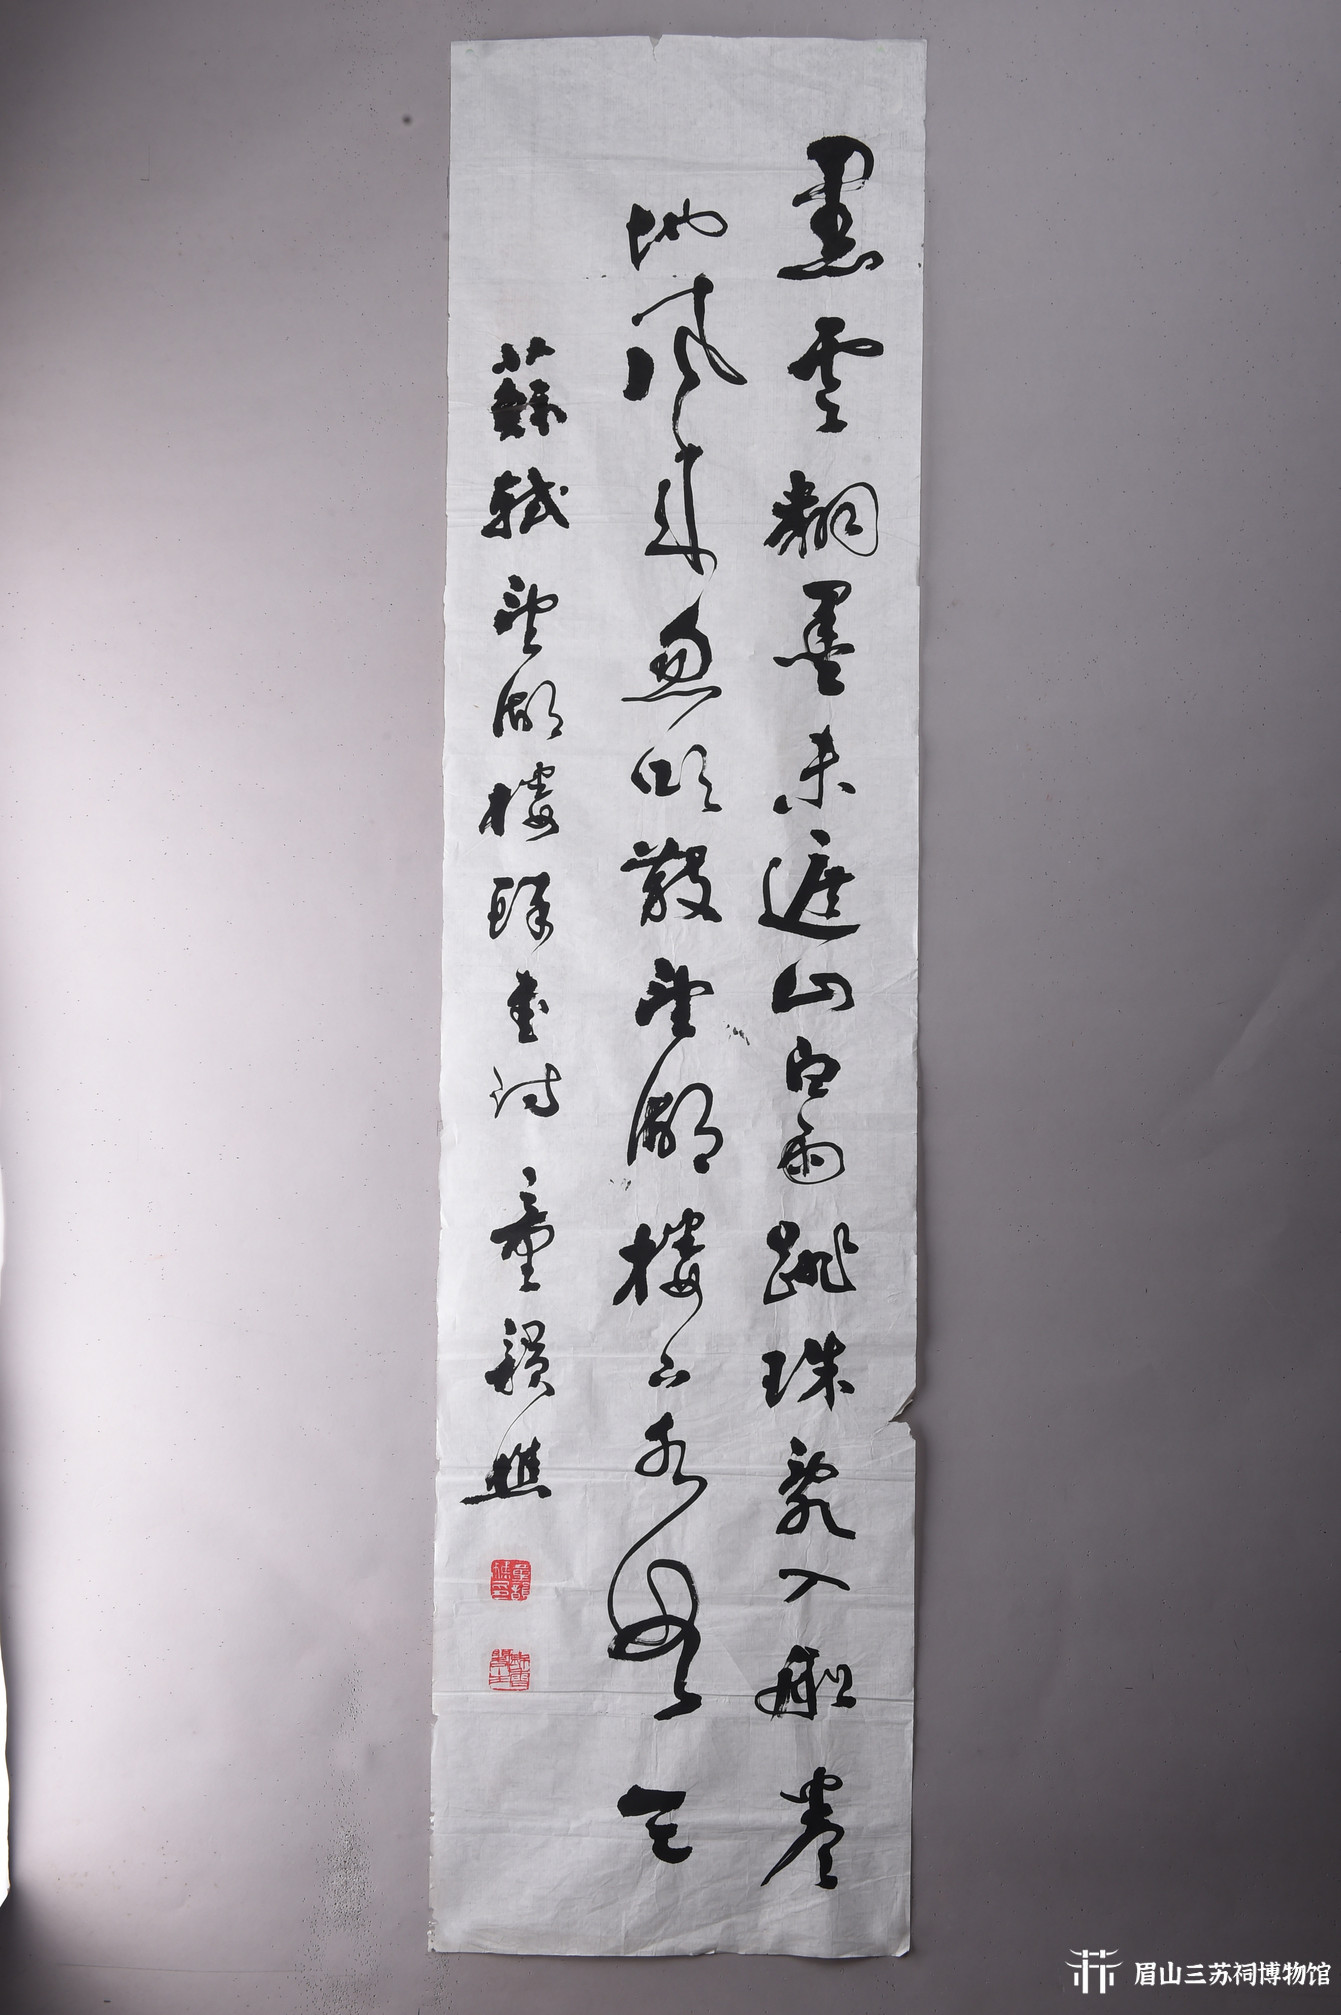 黑雲翻墨未遮山白雨跳珠亂入船卷
地風來忽吹散望湖樓下水如天
蘇軾望湖樓醉書詩 童韻樵
眉山三苏祠博物馆